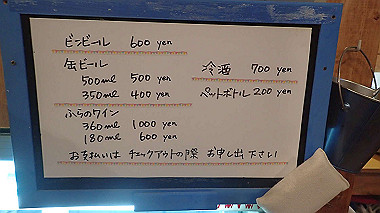 ビンビール 600 yen
缶ビール
500ml 500 yen
350ml 400 yen
ふらのワイン
360ml 1000 yen
180ml 600 yen
冷酒 700 yen
ペットボトル 200 yen
お支払いは チェックアウトの際 お申し出下さい